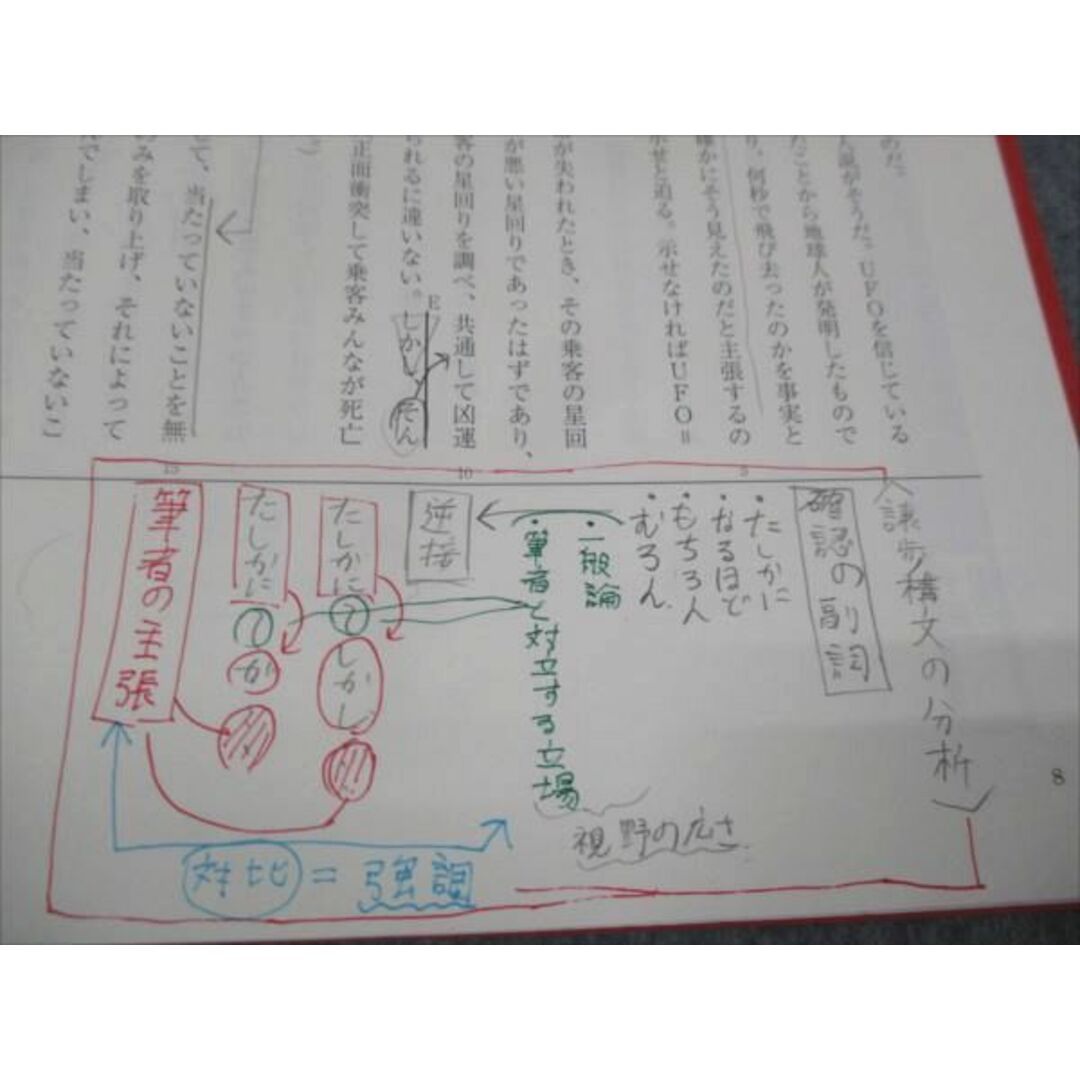 のだ。
人説がそうだ。UFOを信じている
たことから地球人が発明したもので
り。何秒で飛び去ったのかを事実と
確かにそう見えたのだと主張するの
示せと迫る。示せなければUFO=
5
が失われたとき、その乗客の星回
が悪い星回りであったはずであり、
客の星回りを調べ、共通して凶運
10
られるに違いない。しかし、そん
E
正面衝突して乗客みんなが死亡
て、当たっていないことを無
15
のみを取り上げ、それによって
んでしまい、当たっていないこ
〈譲歩構文の分析〉
8
確認の副詞
・たしかに
・なるほど
・もちろん
・むろん
・一般論
・筆者と対立する立場
視野の広さ
逆接
たしかに て しかし
たしかに て が
筆者の主張
対比=強調